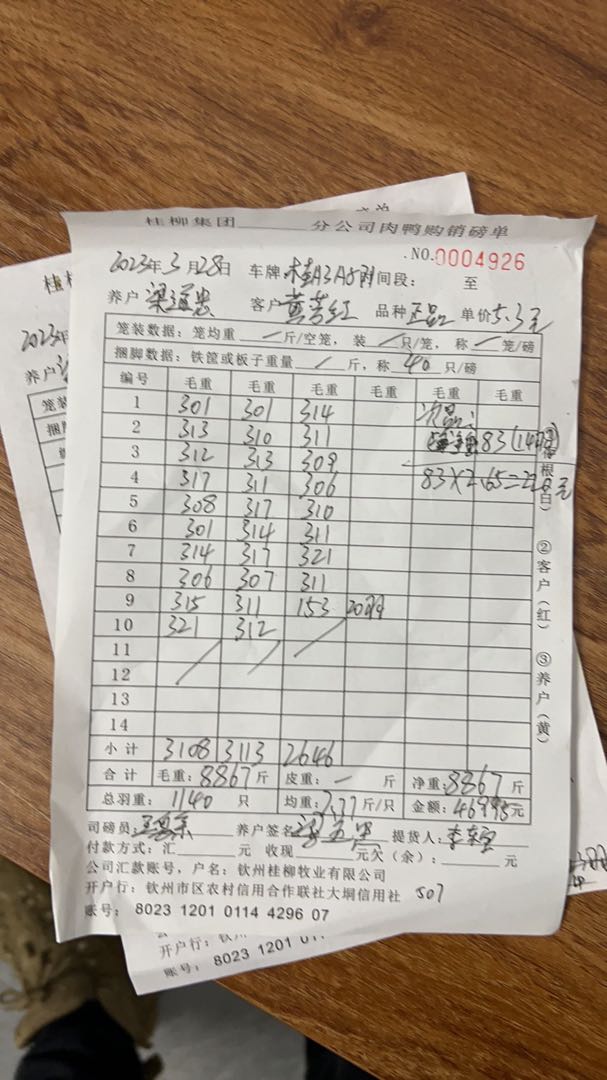 桂柳集团 分公司肉鸭购销磅单
NO.0004926
2023年3月28日 车牌 桂A3A 时间段: 至
养户 梁道忠 客户 黄芳红 品种 正品 单价 5.3元
笼装数据: 笼均重 — 斤/空笼, 装 — 只/笼, 称 — 笼/磅
捆脚数据: 铁筐或板子重量 — 斤, 称 40 只/磅
编号 毛重 毛重 毛重 毛重 毛重 毛重
1 301 301 314 次品:
2 313 310 311 83(14只)
3 312 313 309
4 317 311 306 83×2.65=220元
5 308 317 310
6 301 314 311
7 314 317 321
8 306 307 311
9 315 311 153 20只
10 321 312
11
12
13
14
小计 3108 3113 2646
合计 毛重: 8867 斤 皮重: — 斤 净重: 8867 斤
总羽重: 1140 只 均重: 7.77 斤/只 金额: 46995元
司磅员: 养户签名 提货人:
付款方式: 汇 元 收现 元 欠(余): 元
公司汇款账号, 户名: 钦州桂柳牧业有限公司
开户行: 钦州市区农村信用合作联社大垌信用社 507
账号: 8023 1201 0114 4296 07
根
白)
②客户(红)
③养户(黄)
桂柳
2023年
养户
笼装
捆脚
编
开户行: 钦州
账号: 8023 1201 011